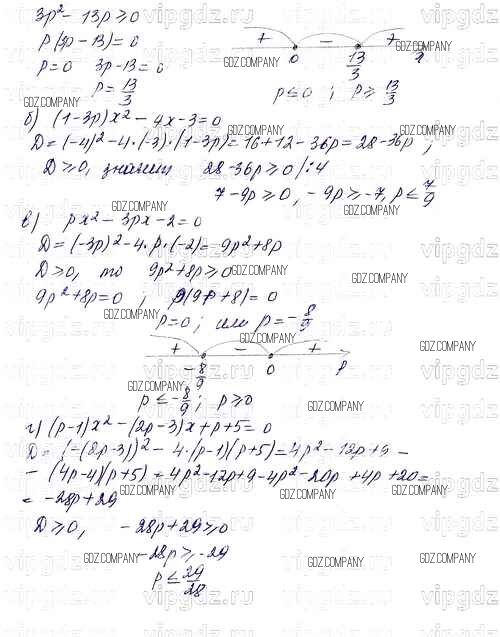 3p² - 13p ≥ 0
p(3p - 13) = 0
p = 0 3p - 13 = 0
p = 13/3
+ - +
0 13/3
p ≤ 0 ; p ≥ 13/3
б) (1-3p)x² - 4x - 3 = 0
D = (-4)² - 4·(-3)·(1-3p) = 16 + 12 - 36p = 28 - 36p ;
D ≥ 0, значит 28 - 36p ≥ 0 |:4
7 - 9p ≥ 0, -9p ≥ -7, p ≤ 7/9
в) px² - 3px - 2 = 0
D = (-3p)² - 4·p·(-2) = 9p² + 8p
D ≥ 0, то 9p² + 8p ≥ 0
9p² + 8p = 0 ; p(9p + 8) = 0
p = 0 ; или p = -8/9
+ - +
-8/9 0 p
p ≤ -8/9 ; p ≥ 0
г) (p-1)x² - (2p-3)x + p + 5 = 0
D = (-(2p-3))² - 4·(p-1)(p+5) = 4p² - 12p + 9 -
- (4p-4)(p+5) = 4p² - 12p + 9 - 4p² - 20p + 4p + 20 =
= -28p + 29
D ≥ 0, -28p + 29 ≥ 0
-28p ≥ -29
p ≤ 29/28
GDZ.COMPANY
vipgdz.ru